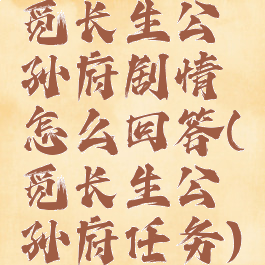 觅长生公
孙府剧情
怎么回答(
觅长生公
孙府任务)